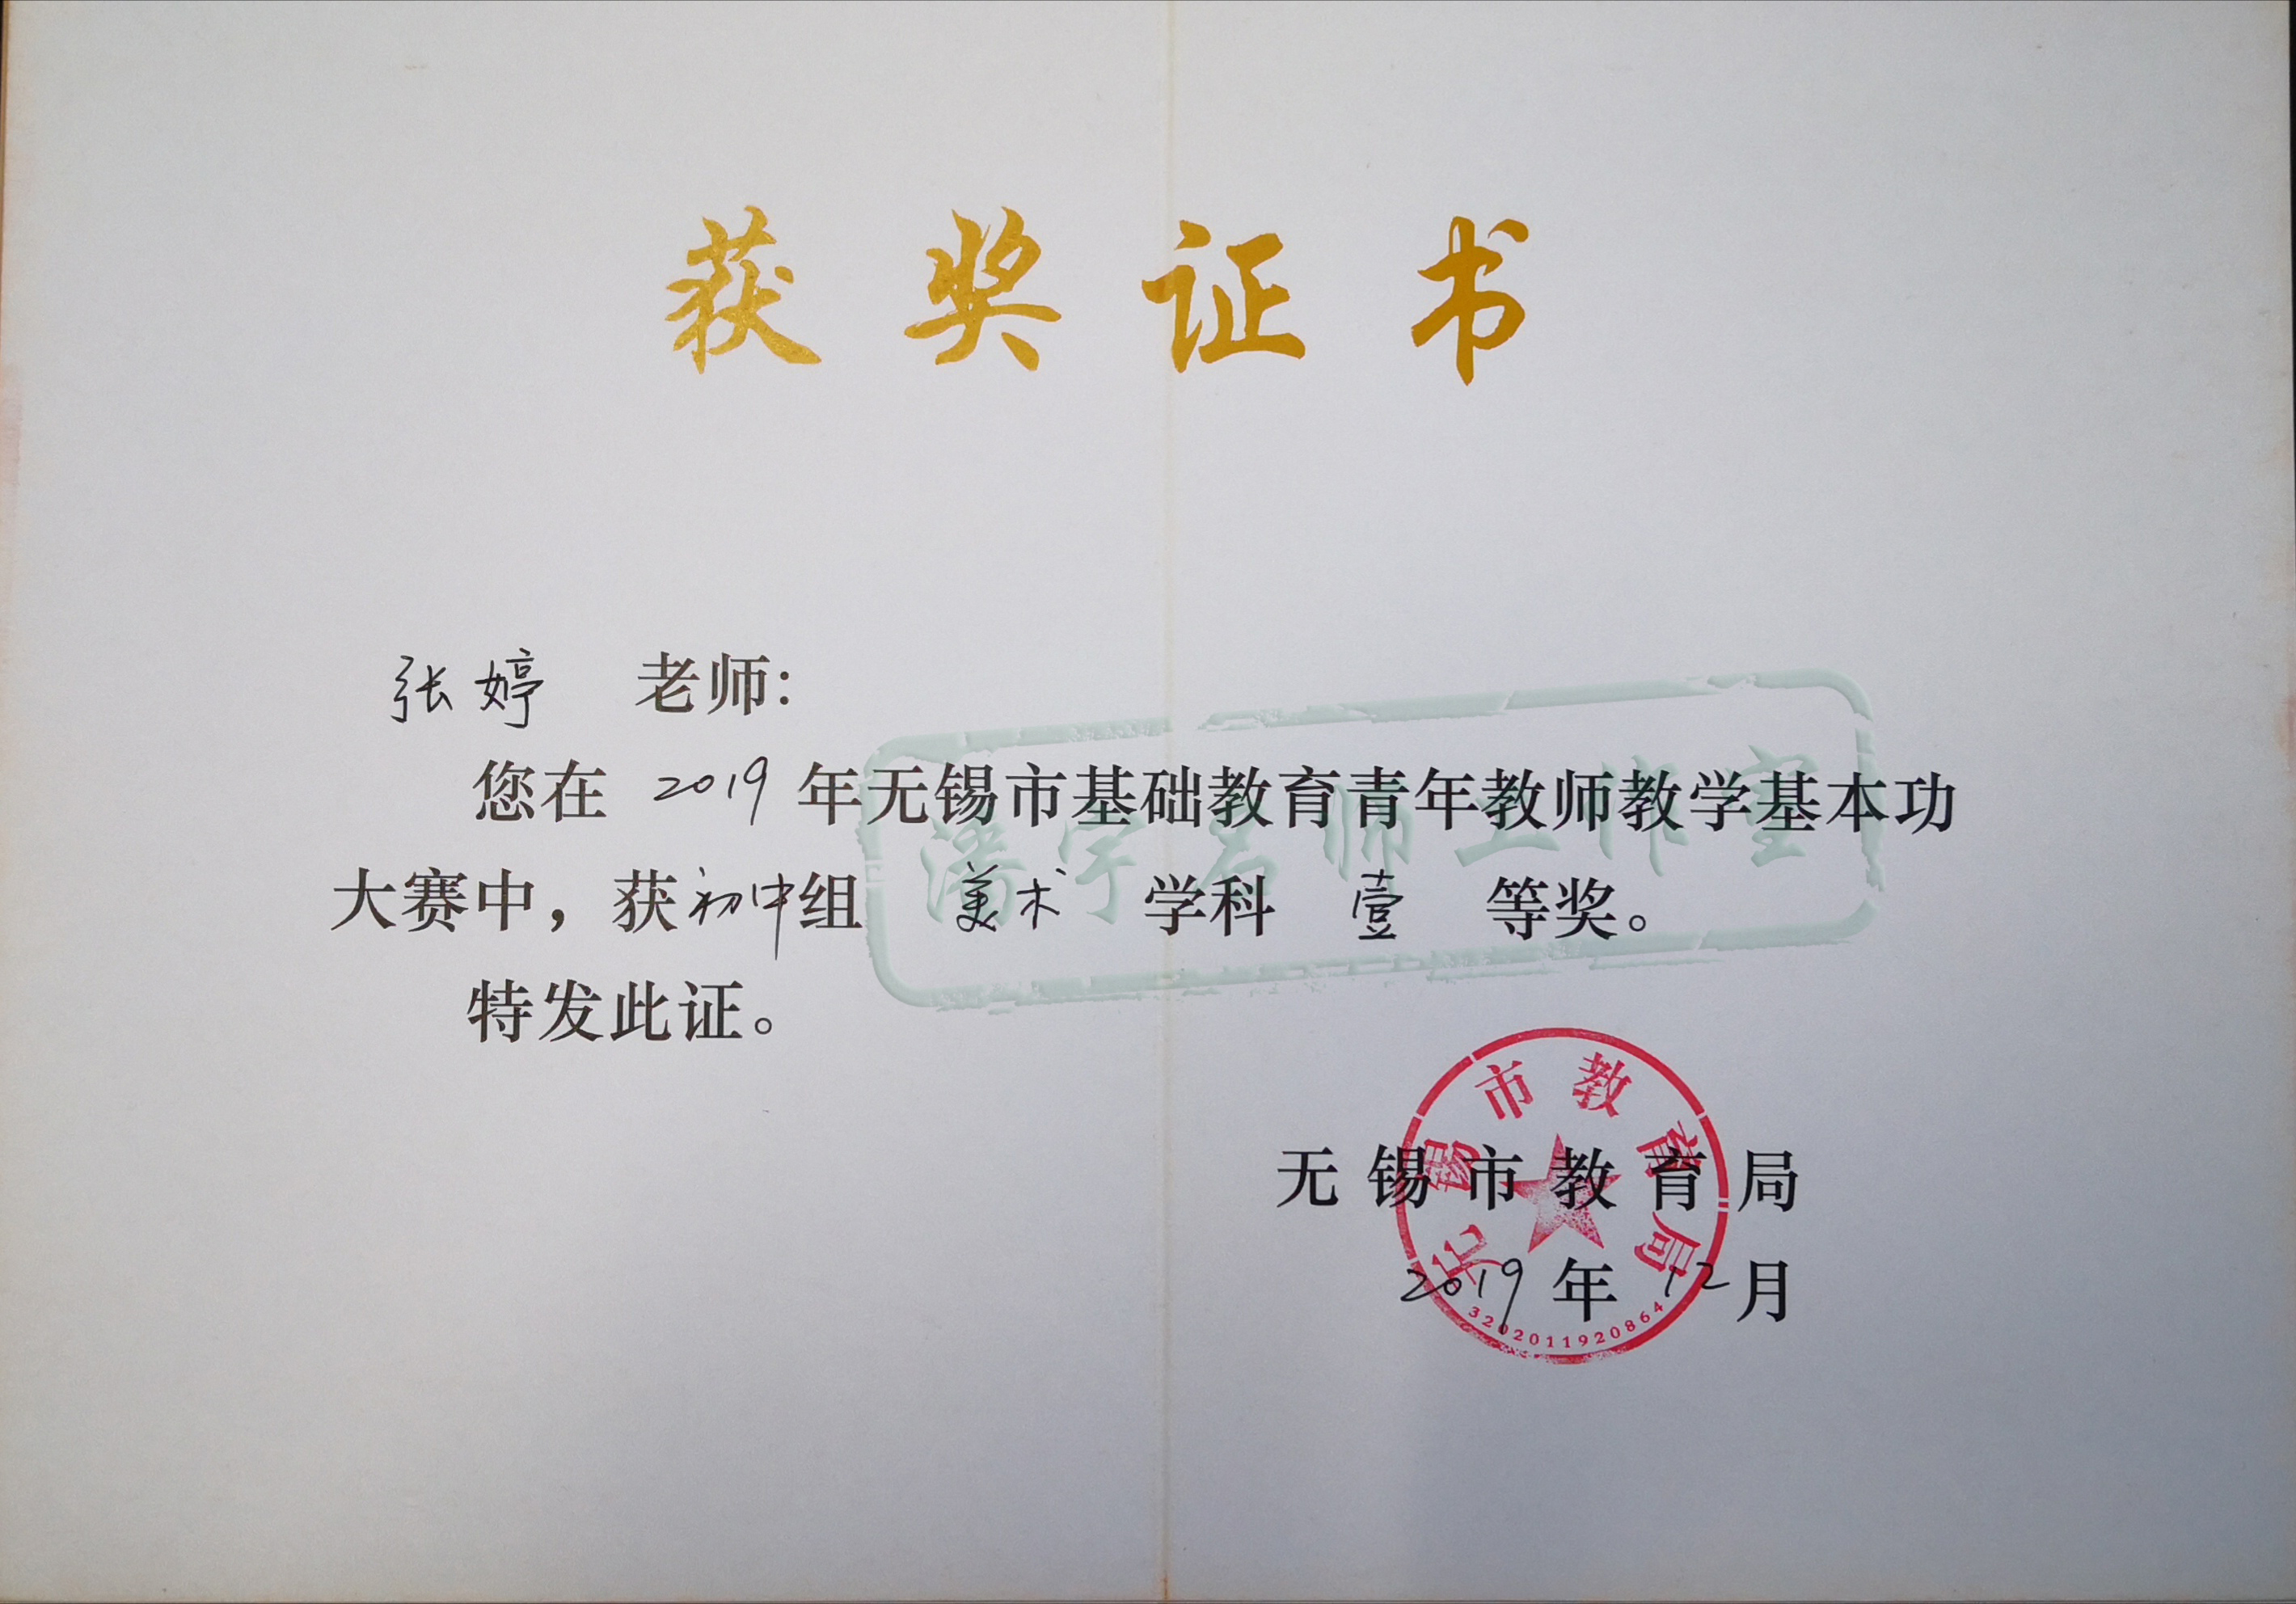 获奖证书
张婷 老师:
您在 2019 年无锡市基础教育青年教师教学基本功
大赛中，获初中组 美术 学科 壹 等奖。
特发此证。
潘宇名师工作室
无锡市教育局
2019年12月
无锡市教育局
3202011920864